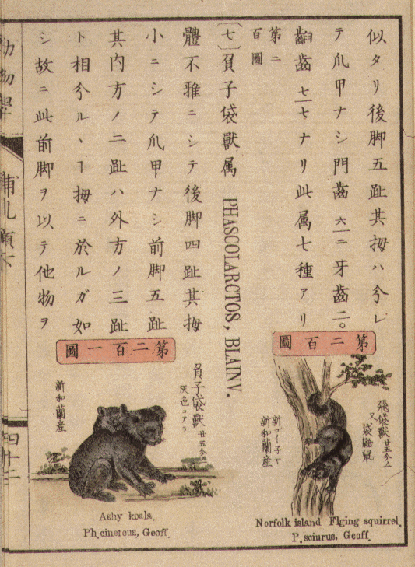 似タリ後脚五趾其拇ハ分レ
テ爪甲ナシ門齒六一二牙齒二〇
齟齒七一七ナリ此属七種アリ
第二百圖
〔七〕負子袋獸属 PHASCOLARCTOS, BLAINV.
體不雅ニシテ後脚四趾其拇
小ニシテ爪甲ナシ前脚五趾
其内方ノ二趾ハ外方ノ三趾
ト相分ルヽヿ拇ニ於ルガ如
シ故ニ此前脚ヲ以テ他物ヲ
第二百圖
新和蘭産
Norfolk island Flying squirrel.
P. sciurus, Geoff.
第二百一圖
負子袋獸
灰色ニアリ
新和蘭産
Ashy koala.
Ph. cinereus, Geoff.
哺乳類
四十二